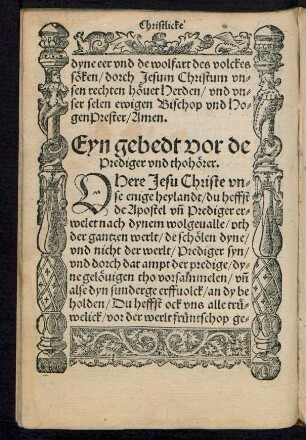 Christlicke
dyne eer vnd de wolfart des volckes
söken/ dorch Jesum Christum vn-
sen rechten höuet Herden/ vnd vn-
ser selen ewigen Bischop vnd Ho-
gen Prester/ Amen.
Eyn gebedt vor de
Prediger vnd thohörer.
O Here Jesu Christe vn-
se enige heylandt/ du heffst
de Apostel vñ Prediger er-
welet nach dynem wolgeualle/ vth
der gantzen werlt/ de schölen dyne/
vnd nicht der werlt/ Prediger syn/
vnd dorch dat ampt der predige/ dy-
ne gelöuigen tho vorsammelen/ vñ
alse dyn sunderge erffuolck/ an dy be
holden/ Du heffst ock vns alle trü-
welick/ vor der werlt früntschop ge-